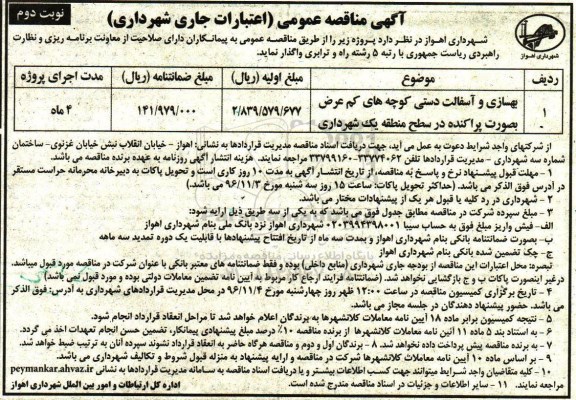 نوبت دوم
آگهی مناقصه عمومی (اعتبارات جاری شهرداری)
شهرداری اهواز
شهرداری اهواز در نظر دارد پروژه زیر را از طریق مناقصه عمومی به پیمانکاران دارای صلاحیت از معاونت برنامه ریزی و نظارت
راهبردی ریاست جمهوری با رتبه ۵ رشته راه و ترابری واگذار نماید.
ردیف موضوع مبلغ اولیه (ریال) مبلغ ضمانتنامه (ریال) مدت اجرای پروژه
۱ بهسازی و آسفالت دستی کوچه های کم عرض بصورت پراکنده در سطح منطقه یک شهرداری ۲/۸۳۹/۵۷۹/۶۷۷ ۱۴۱/۹۷۹/۰۰۰ ۴ ماه
از شرکتهای واجد شرایط دعوت به عمل می آید، جهت دریافت اسناد مناقصه مدیریت قراردادها به نشانی: اهواز - خیابان انقلاب نبش خیابان غزنوی- ساختمان
شماره سه شهرداری - مدیریت قراردادها تلفن ۳۳۷۷۴۰۶۲-۳۳۷۹۹۱۶۰ مراجعه نمایند. هزینه انتشار آگهی روزنامه به عهده برنده مناقصه می باشد.
۱ - مهلت قبول پیشنهاد نرخ و پاسخ به مناقصه، از تاریخ انتشار آگهی به مدت ۱۰ روز کاری است و تحویل پاکات به دبیرخانه محرمانه حراست مستقر
در آدرس فوق الذکر می باشد. (حداکثر تحویل پاکات: ساعت ۱۵ روز سه شنبه مورخ ۹۶/۱۱/۳ می باشد)
۲ - شهرداری در رد کلیه یا قبول هر یک از پیشنهادات مختار می باشد.
۳ - مبلغ سپرده شرکت در مناقصه مطابق جدول فوق می باشد که به یکی از سه طریق ذیل ارایه شود:
الف- فیش واریز مبلغ فوق به حساب سیبا ۰۲۰۳۹۹۴۳۹۸۰۰۱ شهرداری اهواز نزد بانک ملی بنام شهرداری اهواز
ب- بصورت ضمانتنامه بانکی بنام شهرداری اهواز و بمدت سه ماه از تاریخ افتتاح پیشنهادها با قابلیت یک دوره تمدید سه ماهه
ج- چک تضمین شده بانکی بنام شهرداری اهواز
تبصره: محل اعتبارات این مناقصه از بودجه جاری شهرداری (منابع داخلی) بوده و فقط ضمانتنامه های معتبر بانکی با عنوان شرکت در مناقصه مورد قبول میباشد.
درغیر اینصورت پاکات ب و ج بازگشایی نخواهد شد. (ضمانتنامه فرآیند ارجاع کار مربوط به آیین نامه تضمین معاملات دولتی بوده و مورد قبول نمی باشد)
۴ - تاریخ برگزاری کمیسیون مناقصه در ساعت ۱۲:۰۰ ظهر روز چهارشنبه مورخ ۹۶/۱۱/۴ در محل مدیریت قراردادهای شهرداری به آدرس: فوق الذکر
می باشد. حضور پیشنهاد دهندگان در جلسه مجاز می باشد.
۵ - نتیجه کمیسیون برابر ماده ۱۸ آیین نامه معاملات کلانشهرها به برندگان اعلام خواهد شد تا مراحل انعقاد قرارداد انجام شود.
۶ - به استناد بند ۵ ماده ۱۱ آئین نامه معاملات کلانشهرها از برنده مناقصه ۱۰٪ درصد مبلغ پیشنهادی پیمانکار، تضمین حسن انجام تعهدات اخذ می گردد.
۷ - به برنده مناقصه پیش پرداخت داده نخواهد شد. ۸ - برندگان اول و دوم و مناقصه هرگاه حاضر به انعقاد قرارداد نشوند سپرده آنان به ترتیب ضبط خواهد شد.
۹ - بر اساس ماده ۱۰ آیین نامه معاملات کلانشهرها شرکت در مناقصه و ارایه پیشنهاد به منزله قبول شروط و تکالیف شهرداری می باشد.
۱۰ - کلیه متقاضیان واجد شرایط میتوانند جهت کسب اطلاعات بیشتر و یا دریافت اسناد مناقصه به سامانه مدیریت قراردادها به نشانی peymankar.ahvaz.ir
مراجعه نمایند. ۱۱ - سایر اطلاعات و جزئیات در اسناد مناقصه مندرج شده است.
اداره کل ارتباطات و امور بین الملل شهرداری اهواز